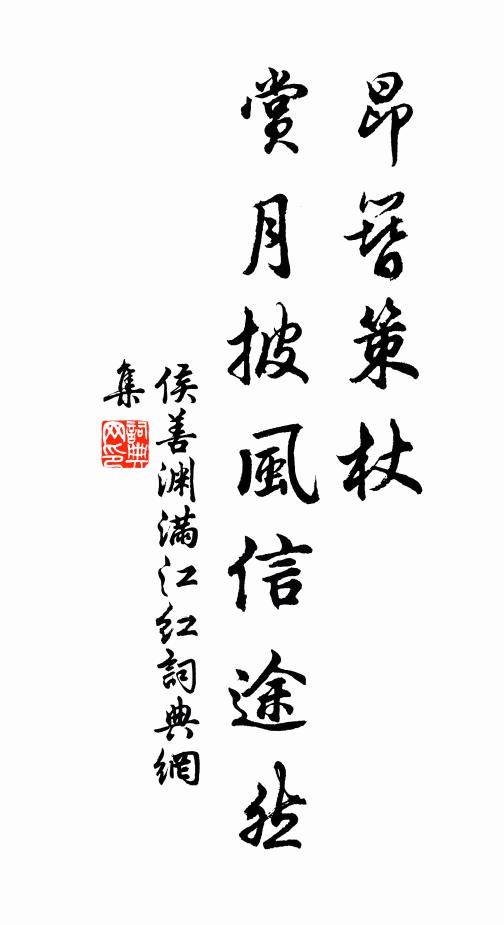 昂簪策杖
賞月披風信途然
侯善渊滿江紅詞典網
集
詞典
网印